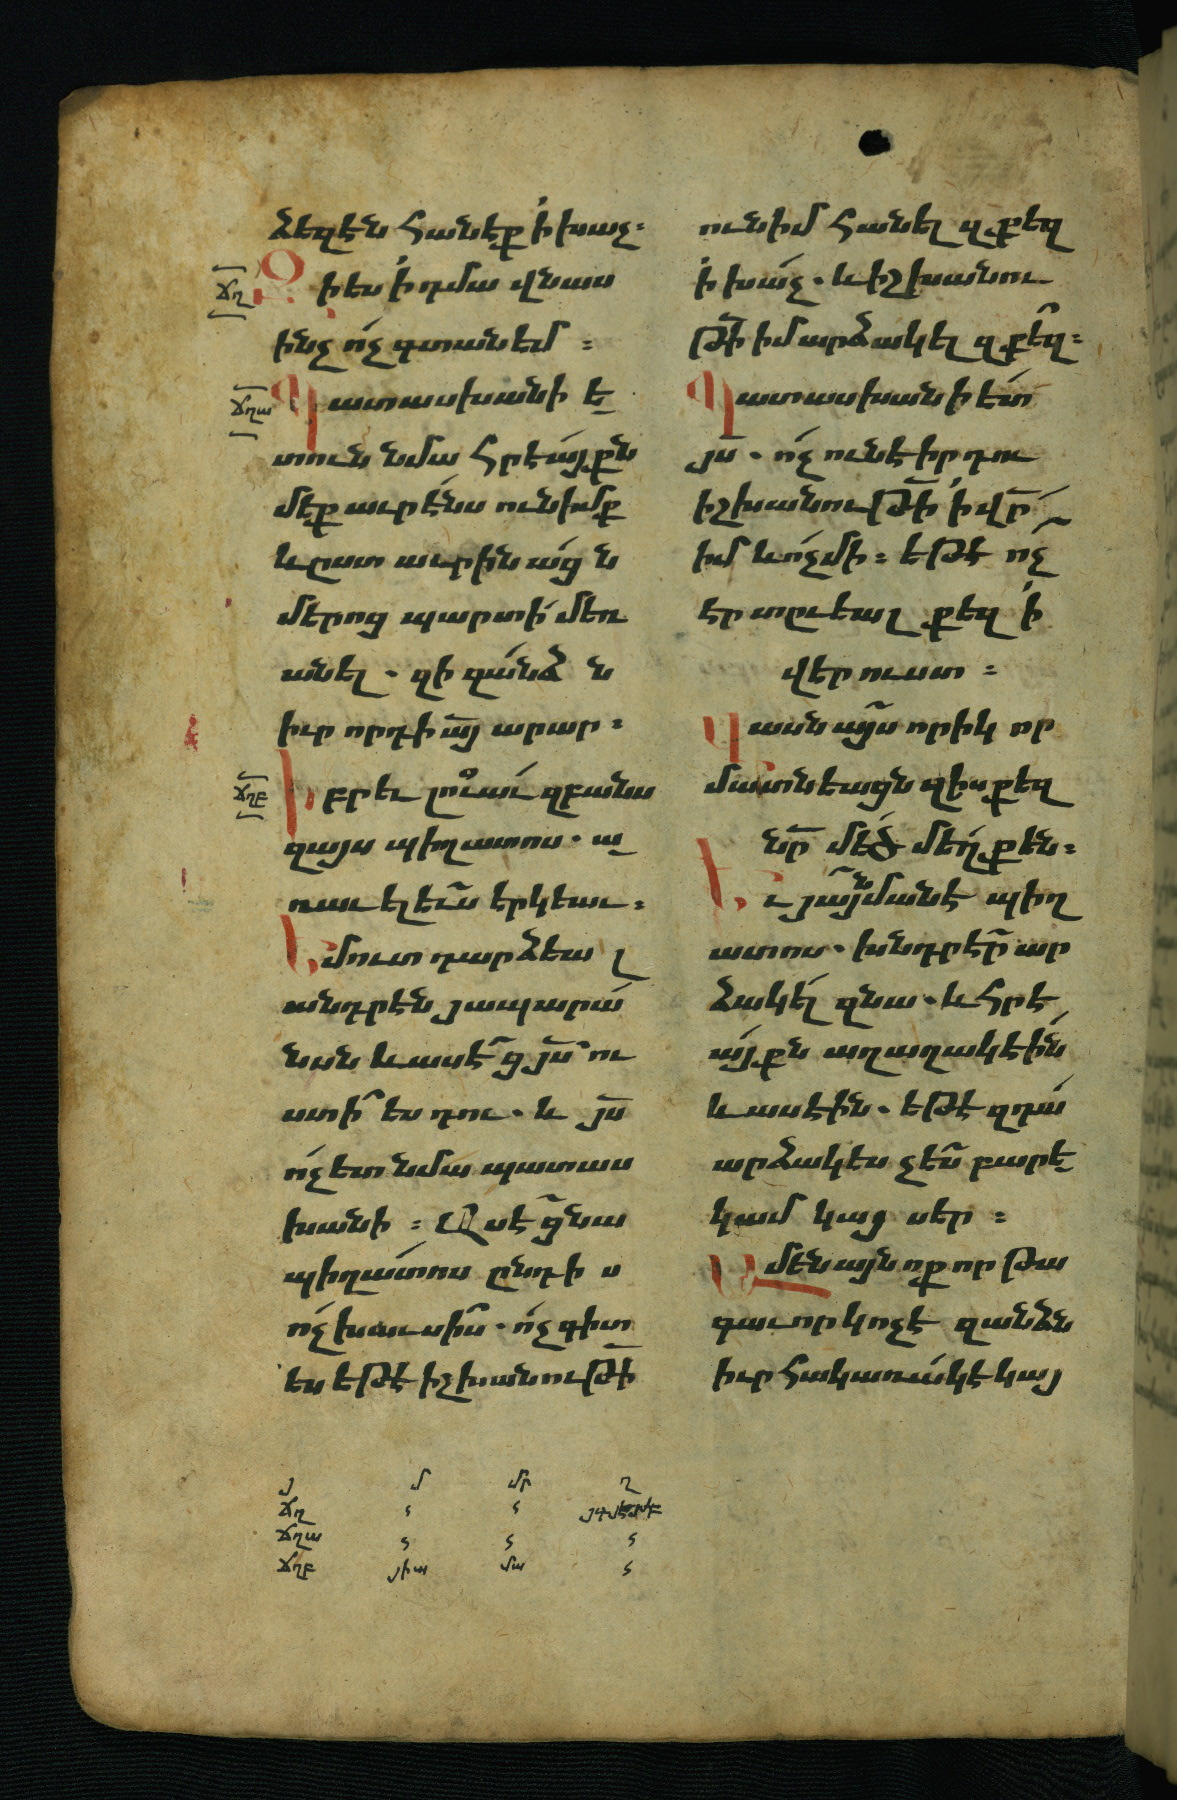 ձեզէն հանէք ՛ի խաչ։
ճղ Զի ես ՛ի դմա վնաս
ինչ ո՛չ գտանեմ ։
ճղա Պատասխանի ե
տուն նմա հրէա՛յքն
մէք աւրէ՛նս ունիմք
և ըստ աւրինա՛ց ն
մերոց պարտի՛ մեռ
անել . զի զա՛նձ ն
իւր որդի ա՟յ արար ։
ճղբ Իբրեւ լուա՛ւ զբանս
զայս պիղատոս . ա
ռաւել ե՟ւս երկեաւ ։
Եմուտ դարձեա լ
անդրէն յապարա՛
նսն և ասէ՞ ց յ՟ս՝ ու
ստի՞ ես դու . և յ՟ս
ո՛չ ետ նմա պատաս
խանի ։ Ասէ ց՟նա
պիղա՛տոս ընդի ս
ո՛չ խաւսի՞ս . ո՛չ գիտ
ես եթէ իշխանութի
ունիմ հանել զքեզ
՛ի խա՛չ . և իշխանու
թի՟ իմ արձակել զքե՞զ ։
Պատասխանի ե՛տ
յ՟ս . ո՛չ ունէիր դու
իշխանութի՟ ՛ի վր՟
իմ և ո՛չ մի ։ եթէ ո՛չ
էր տըւեալ քեզ ՛ի
վերուստ ։
Վասն այ՟ս որիկ որ
մատնեացն զիս քեզ
նր՟ մե՛ծ մեղ քեն ։
Եւ յայ՟նմանէ պիղ
ատոս . խնդրէր՟ ար
ձակել զնա . և հրէ
ա՛յքն աղաղակէի՛ն
և ասէին . եթէ զդա՛
արձակես չե՟ս բարե
կամ կայ սեր ։
Ամենայն ոք որ թա
գաւոր կոչէ զանձն
իւր հակառա՛կ է կայ
յ մ մր ղ
ճղ
ճղա
ճղբ յիա մա